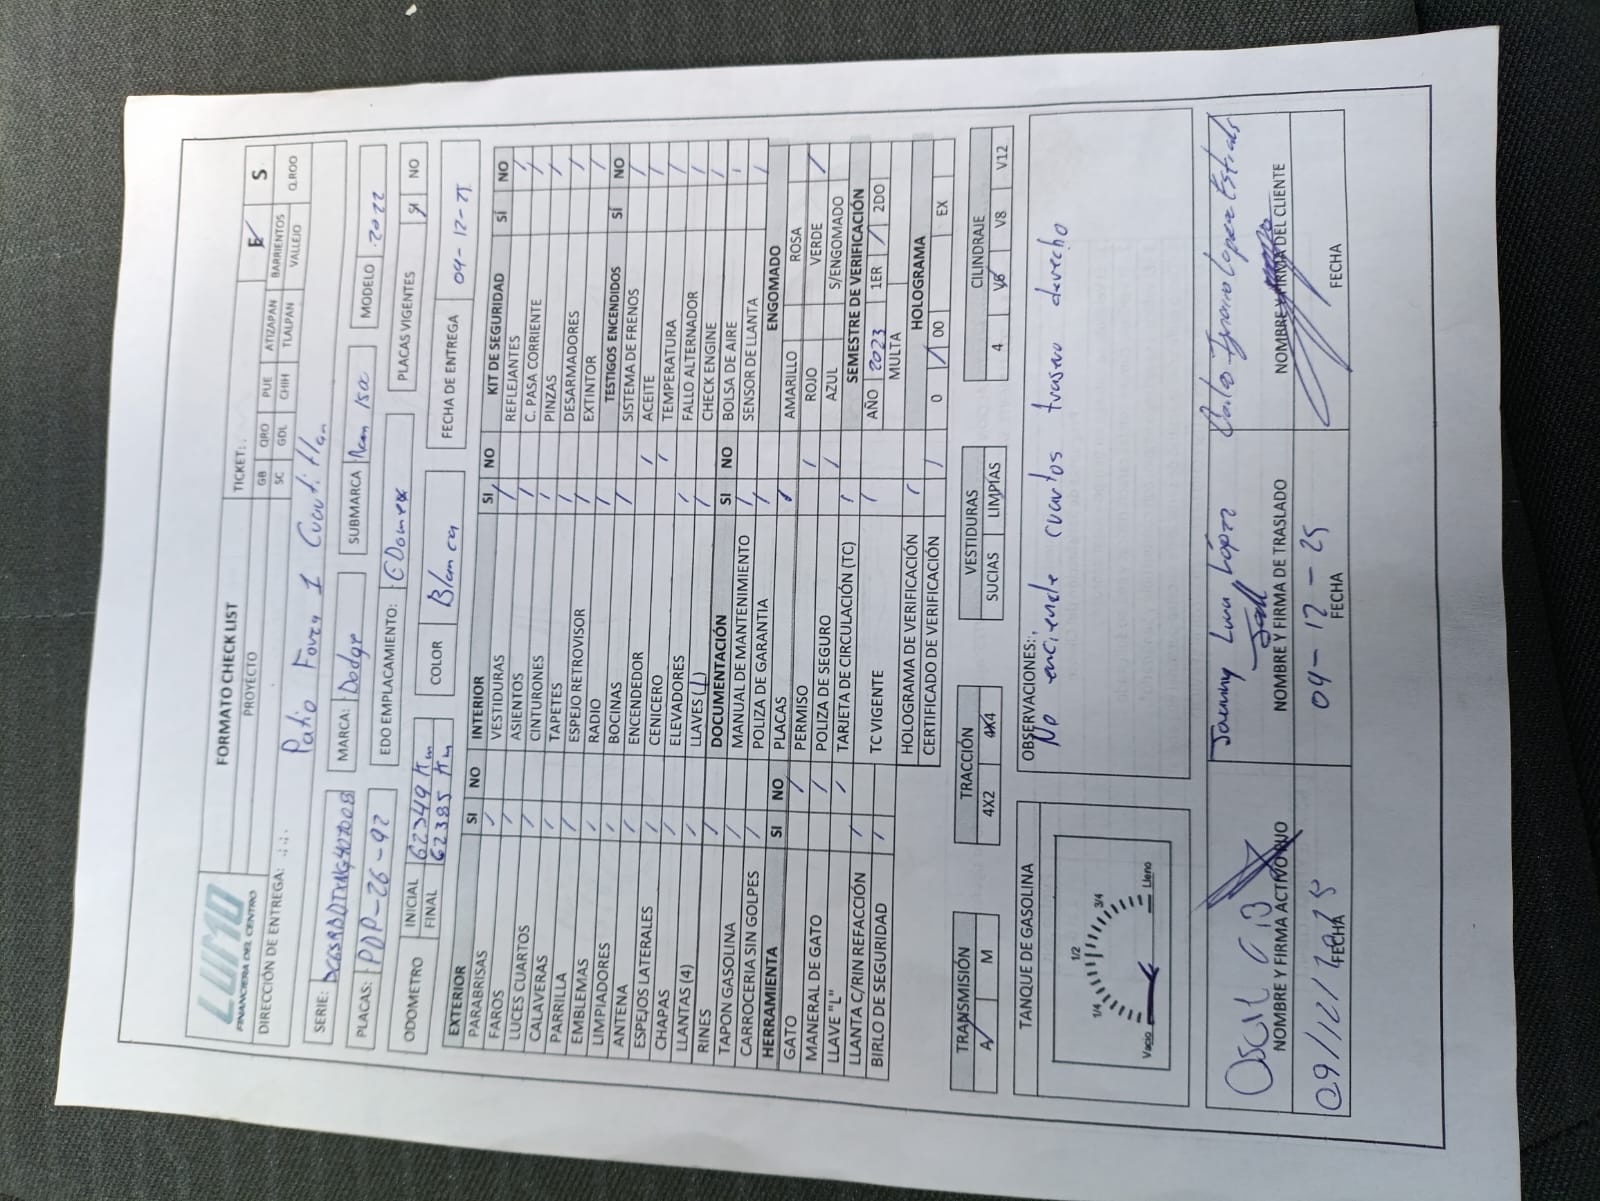 LUMO
FINANCIERA DEL CENTRO
FORMATO CHECK LIST
PROYECTO
TICKET:
E S
DIRECCIÓN DE ENTREGA:
Patio Forza 1 Cuautitlan
GB QRO PUE ATIZAPAN BARRIENTOS Q.ROO
SC GDL CHIH TLALPAN VALLEJO
SERIE:
MARCA: Dodge SUBMARCA MODELO 2022
PLACAS: PDP-26-92 EDO EMPLACAMIENTO: EDomex PLACAS VIGENTES SI NO
ODOMETRO INICIAL 62349 Km
FINAL 62385 Km
COLOR Blanca FECHA DE ENTREGA 04-12-25
EXTERIOR SI NO
PARABRISAS
FAROS
LUCES CUARTOS
CALAVERAS
PARRILLA
EMBLEMAS
LIMPIADORES
ANTENA
ESPEJOS LATERALES
CHAPAS
LLANTAS (4)
RINES
TAPON GASOLINA
CARROCERIA SIN GOLPES
HERRAMIENTA SI NO
GATO
MANERAL DE GATO
LLAVE "L"
LLANTA C/RIN REFACCIÓN
BIRLO DE SEGURIDAD
INTERIOR SI NO
VESTIDURAS
ASIENTOS
CINTURONES
TAPETES
ESPEJO RETROVISOR
RADIO
BOCINAS
ENCENDEDOR
CENICERO
ELEVADORES
LLAVES (1)
DOCUMENTACIÓN SI NO
MANUAL DE MANTENIMIENTO
POLIZA DE GARANTIA
PLACAS
PERMISO
POLIZA DE SEGURO
TARJETA DE CIRCULACIÓN (TC)
TC VIGENTE
HOLOGRAMA DE VERIFICACIÓN
CERTIFICADO DE VERIFICACIÓN
KIT DE SEGURIDAD SÍ NO
REFLEJANTES
C. PASA CORRIENTE
PINZAS
DESARMADORES
EXTINTOR
TESTIGOS ENCENDIDOS SÍ NO
SISTEMA DE FRENOS
ACEITE
TEMPERATURA
FALLO ALTERNADOR
CHECK ENGINE
BOLSA DE AIRE
SENSOR DE LLANTA
ENGOMADO
AMARILLO ROSA
ROJO VERDE
AZUL S/ENGOMADO
SEMESTRE DE VERIFICACIÓN
AÑO 2023 1ER 2DO
MULTA
HOLOGRAMA
0 00 EX
TRANSMISIÓN
A M
TRACCIÓN
4X2 4X4
VESTIDURAS
SUCIAS LIMPIAS
CILINDRAJE
4 V6 V8 V12
TANQUE DE GASOLINA
Vacio 1/4 1/2 3/4 Lleno
OBSERVACIONES:
No enciende cuartos trasero derecho
NOMBRE Y FIRMA ACTIVO FIJO
09/12/2025
FECHA
Joanny Luna López
NOMBRE Y FIRMA DE TRASLADO
04-12-25
FECHA
NOMBRE Y FIRMA DEL CLIENTE
FECHA